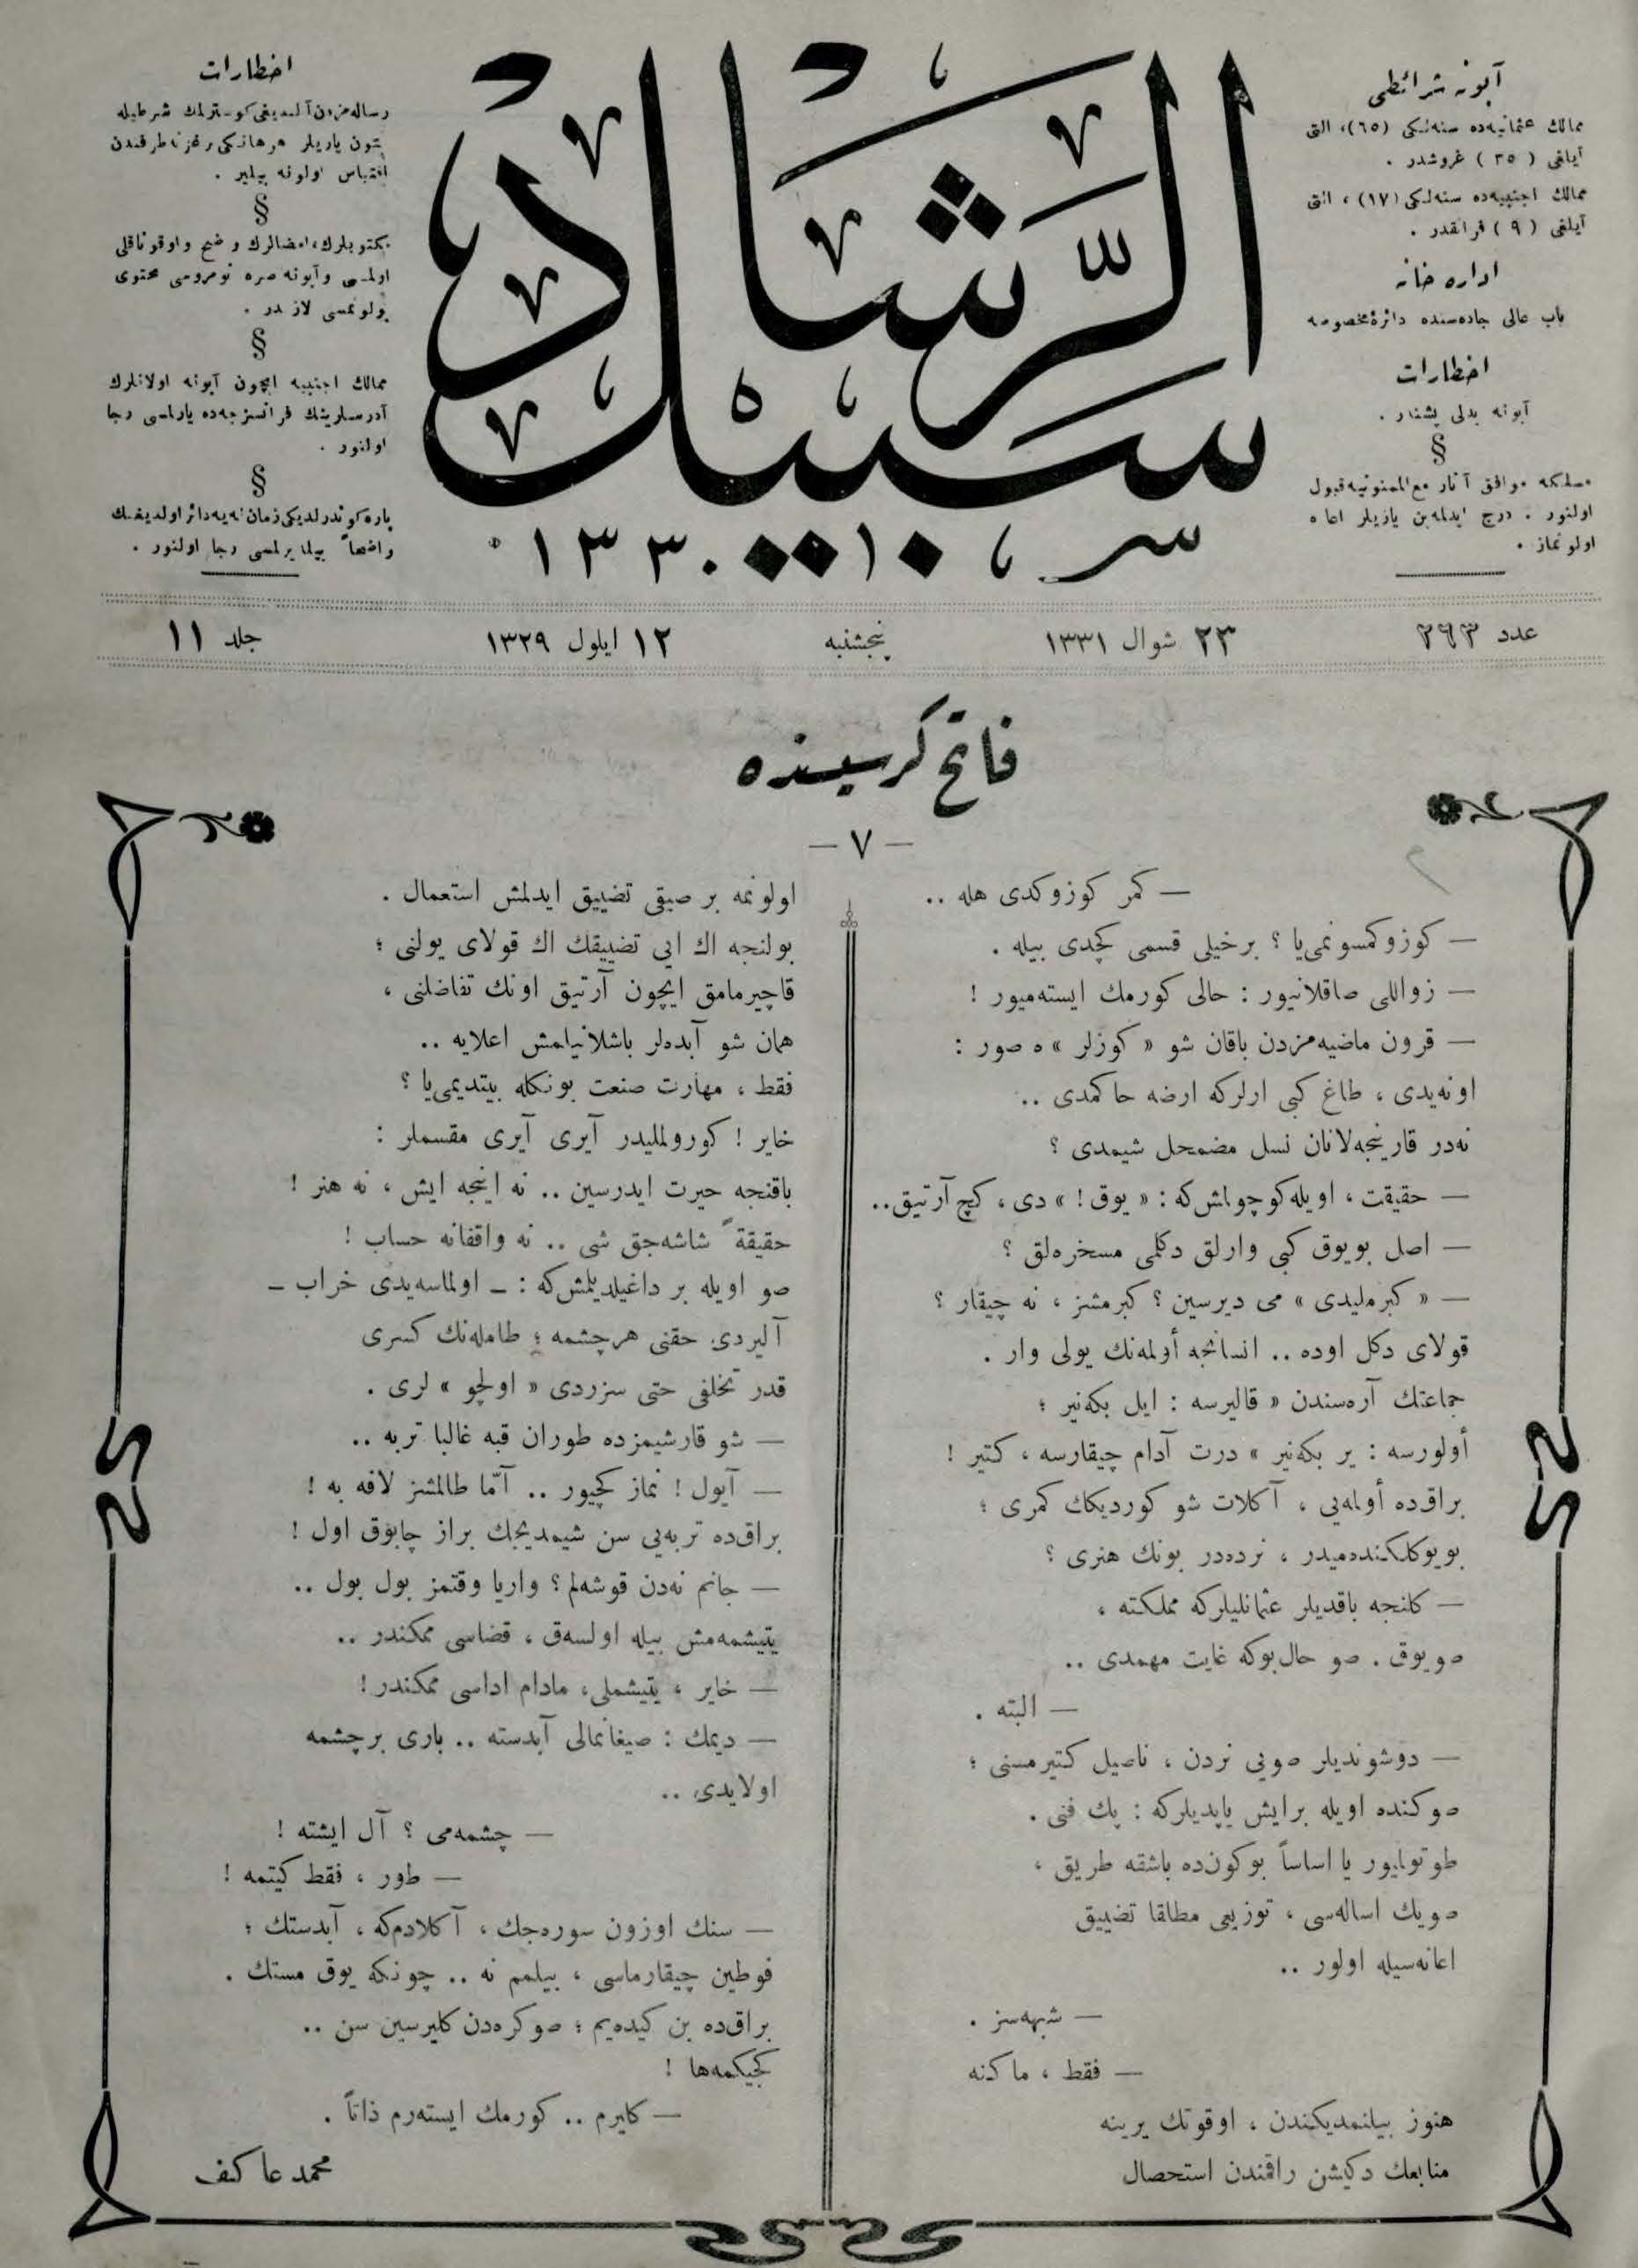 آبونه شرائطی
ممالك عثمانیه‌ده سنه‌لكی (٦٥)، التی
آیلغی ( ٣٥ ) غروشدر .
ممالك اجنبیه‌ده سنه‌لكی (١٧) ، التی
آیلغی ( ٩ ) فرانقدر .
اداره خانه
باب عالی جاده‌سنده دائرۀ مخصوصه
اخطارات
آبونه بدلی پشیندر .
§
مسلكه موافق آثار مع الممنونیه قبول
اولنور . درج ایدلمه‌ین یازیلر اعاده
اولونماز .
سبیل الرشاد
سر ١٣٣٠
اخطارات
رساله‌مزدن آلندیغی كوسترلمك شرطیله
بتون یازیلر هر هانكی بر غزته طرفندن
اقتباس اولونه بیلیر .
§
مكتوبلرك، امضالرك واضح و اوقوناقلی
اولمسی و آبونه صره نومروسی محتوی
بولونمسی لازمدر .
§
ممالك اجنبیه ایچون آبونه اولانلرك
آدرسلرینك فرانسزجه‌ده یازلمسی رجا
اولنور .
§
پاره كوندرلدیكی زمان نه‌یه دائر اولدیغنك
واضحاً بیلدیرلمسی رجا اولنور .
عدد ٢٦٣
٢٣ شوال ١٣٣١
پنجشنبه
١٢ ایلول ١٣٢٩
جلد ١١
فاتح كرسیسنده
— ٧ —
— كمر كوزوكدی هله ..
— كوزوكمسونمی‌یا ؟ برخیلی قسمی كچدی بیله .
— زواللی صاقلانیور : حالی كورمك ایسته‌میور !
— قرون ماضیه‌مزدن باقان شو « كوزلر » ه صور :
اونه‌یدی ، طاغ كبی ارلركه ارضه حاكمدی ..
نه‌در قارینجه‌لانان نسل مضمحل شیمدی ؟
— حقیقت ، اویله كوچولمش‌كه : « یوق ! » دی ، كچ آرتیق..
— اصل بویوق كبی وارلق دكلمی مسخره‌لق ؟
— « كبرملیدی » می دیرسین ؟ كبرمشز ، نه چیقار ؟
قولای دكل اوده .. انسانجه أولمه‌نك یولی وار .
جماعتك آره‌سندن « قالیرسه : ایل بكه‌نیر ؛
أولورسه : یر بكه‌نیر » درت آدام چیقارسه ، كتیر !
براق‌ده أولمه‌یی ، آكلات شو كوردیكك كمری ؛
بویوكلكنده‌میدر ، نرده‌در بونك هنری ؟
— كلنجه باقدیلر عثمانلیلركه مملكته ،
صویوق . صو حال‌بوكه غایت مهمدی ..
— البته .
— دوشوندیلر صویی نردن ، ناصیل كتیرمسنی ؛
صوكنده اویله برایش یاپدیلركه : پك فنی .
طوتولیور یا اساساً بوكون‌ده باشقه طریق ،
صویك اساله‌سی ، توزیعی مطلقا تضییق
اعانه‌سیله اولور ..
— شبهه‌سز .
— فقط ، ماكنه
هنوز بیلنمدیكندن ، اوقوتك یرینه
منابعك دكیشن راقمندن استحصال
اولونمه بر صیقی تضییق ایدلمش استعمال .
بولنجه اك ایی تضییقك اك قولای یولنی ؛
قاچیرمامق ایچون آرتیق اونك تفاضلنی ،
همان شو آبده‌لر باشلانیلمش اعلایه ..
فقط ، مهارت صنعت بونكله بیتدیمی‌یا ؟
خایر ! كورولملیدر آیری آیری مقسملر :
باقنجه حیرت ایدرسین .. نه اینجه ایش ، نه هنر !
حقیقةً شاشه‌جق شی .. نه واقفانه حساب !
صو اویله بر داغیلدیلمش‌كه : ـ اولماسه‌یدی خراب ـ
آلیردی حقنی هرچشمه ؛ طامله‌نك كسری
قدر تخلفی حتی سزردی « اولچو » لری .
— شو قارشیمزده طوران قبه غالبا تربه ..
— آیول ! نماز كچیور .. آمّا طالمشز لافه به !
براق‌ده تربه‌یی سن شیمدیجك براز چابوق اول !
— جانم نه‌دن قوشه‌لم ؟ واریا وقتمز بول بول ..
یتیشمه‌مش بیله اولسه‌ق ، قضاسی ممكندر ..
— خایر ، یتیشملی، مادام اداسی ممكندر !
— دیمك : صیغانمالی آبدسته .. باری برچشمه
اولایدی ..
— چشمه‌می ؟ آل ایشته !
— طور ، فقط كیتمه !
— سنك اوزون سوره‌جك ، آكلادم‌كه ، آبدستك ؛
فوطین چیقارماسی ، بیلمم نه .. چونكه یوق مستك .
براق‌ده بن كیده‌یم ؛ صوكره‌دن كلیرسین سن ..
كجیكمه‌ها !
— كلیرم .. كورمك ایسته‌رم ذاتاً .
محمد عاكف